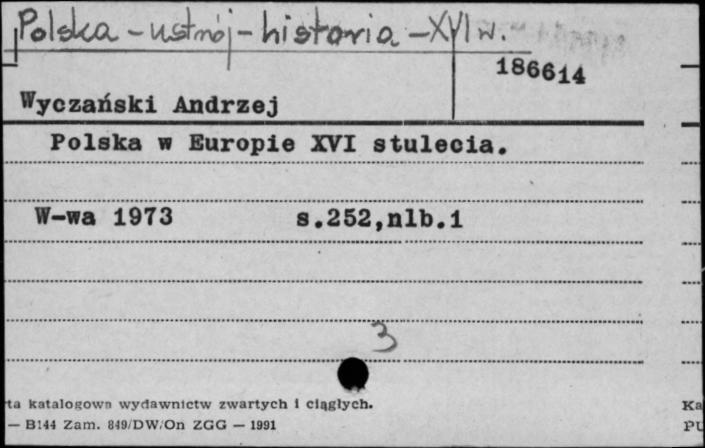 Polska - ustrój - historia - XVI w.
186614
Wyczański Andrzej
Polska w Europie XVI stulecia.
W-wa 1973 s.252,nlb.1
3
ta katalogowa wydawnictw zwartych i ciągłych.
— B144 Zam. 849/DW/On ZGG — 1991
Ka
PU